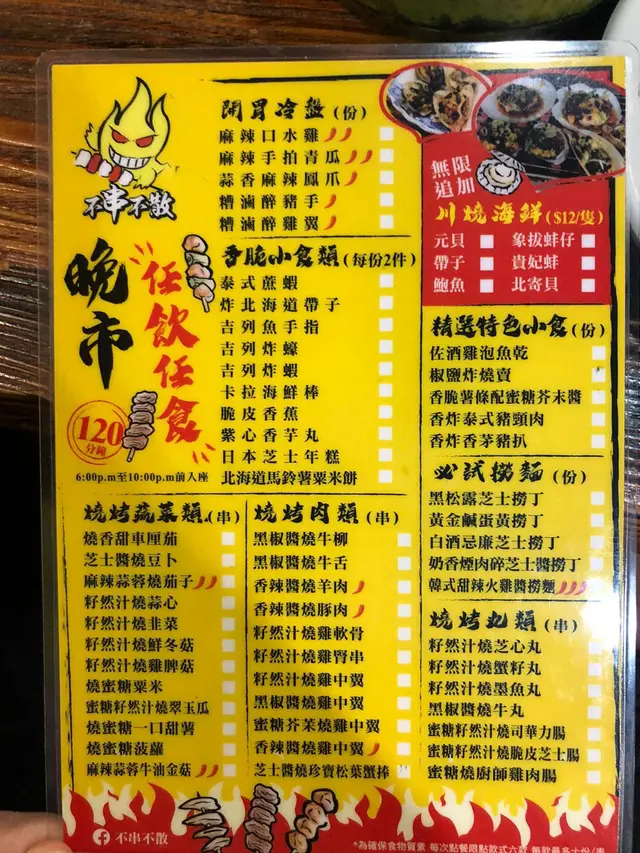 不串不散
晚市
任飲任食
120
分鐘
6:00p.m至10:00p.m前入座
開胃冷盤(份)
麻辣口水雞
麻辣手拍青瓜
蒜香麻辣鳳爪
糟滷醉豬手
糟滷醉雞翼
香脆小食類(每份2件)
泰式蔗蝦
炸北海道帶子
吉列魚手指
吉列炸蠔
吉列炸蝦
卡拉海鮮棒
脆皮香蕉
紫心香芋丸
日本芝士年糕
北海道馬鈴薯粟米餅
無限
追加
川燒海鮮($12/隻)
元貝 象拔蚌仔
帶子 貴妃蚌
鮑魚 北寄貝
精選特色小食(份)
佐酒雞泡魚乾
椒鹽炸燒賣
香脆薯條配蜜糖芥末醬
香炸泰式豬頸肉
香炸香茅豬扒
必試撈麵(份)
黑松露芝士撈丁
黃金鹹蛋黃撈丁
白酒忌廉芝士撈丁
奶香煙肉碎芝士醬撈丁
韓式甜辣火雞醬撈麵
燒烤蔬菜類(串)
燒香甜車厘茄
芝士醬燒豆卜
麻辣蒜蓉燒茄子
籽然汁燒蒜心
籽然汁燒韭菜
籽然汁燒鮮冬菇
籽然汁燒雞脾菇
燒蜜糖粟米
蜜糖籽然汁燒翠玉瓜
燒蜜糖一口甜薯
燒蜜糖菠蘿
麻辣蒜蓉牛油金菇
燒烤肉類(串)
黑椒醬燒牛柳
黑椒醬燒牛舌
香辣醬燒羊肉
香辣醬燒豚肉
籽然汁燒雞軟骨
籽然汁燒雞腎串
籽然汁燒雞中翼
黑椒醬燒雞中翼
蜜糖芥茉燒雞中翼
香辣醬燒雞中翼
芝士醬燒珍寶松葉蟹捧
燒烤丸類(串)
籽然汁燒芝心丸
籽然汁燒蟹籽丸
籽然汁燒墨魚丸
黑椒醬燒牛丸
蜜糖籽然汁燒司華力腸
蜜糖籽然汁燒脆皮芝士腸
蜜糖燒廚師雞肉腸
不串不散
*為確保食物質素 每次點餐限點款式六款 每款最多十份/串